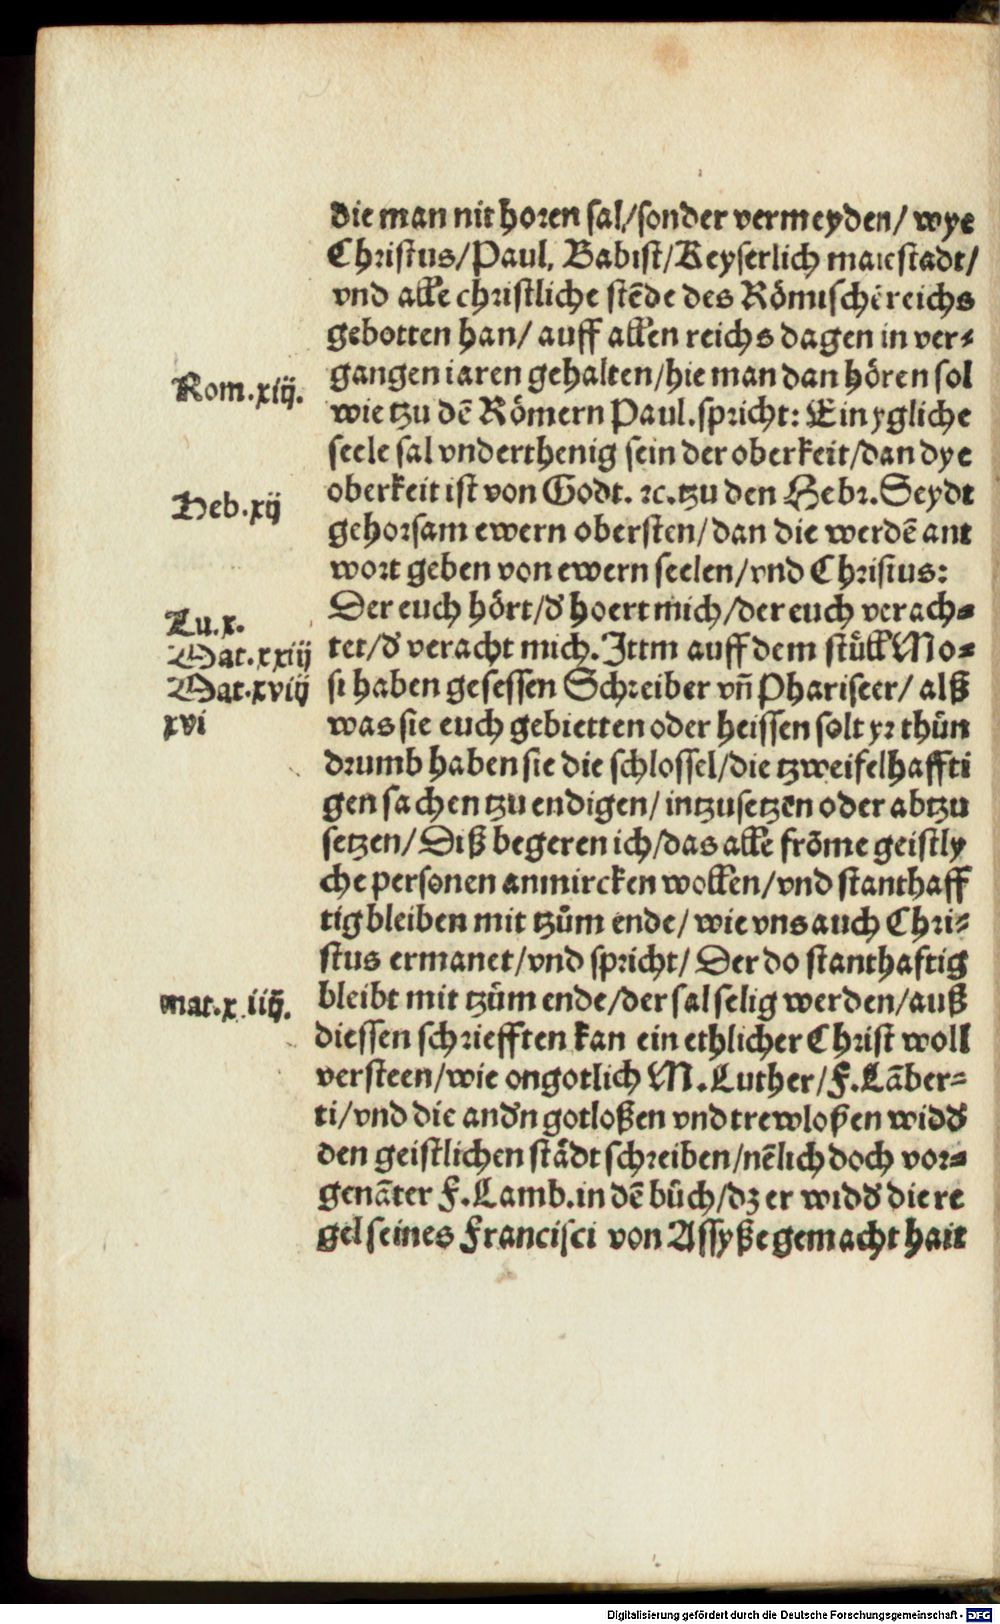 die man nit horen sal/sonder vermeyden/ wye
Christus/Paul. Babist/Keyserlich maiestadt/
vnd alle christliche stēde des Römischē reichs
gebotten han/ auff allen reichs dagen in ver-
gangen iaren gehalten/hie man dan hören sol
Rom.xiij.
wie tzu dē Römern Paul.spricht: Ein ygliche
seele sal vnderthenig sein der oberkeit/dan dye
oberkeit ist von Godt. ꝛc.tzu den Hebr.Seydt
Heb.xij
gehorsam ewern obersten/dan die werdē ant
wort geben von ewern seelen/vnd Christus:
Der euch hört/d̓ hoert mich/der euch verach-
Lu.x.
tet/d̓ veracht mich. Ittm auff dem stůll Mo-
Mat.xxiij
si haben gesessen Schreiber vn̄ Phariseer/ alß
Mat.xviij
was sie euch gebietten oder heissen solt yr thůn
xvi
drumb haben sie die schlossel/die tzweifelhaffti
gen sachen tzu endigen/ intzusetzen oder abtzu
setzen/ Diß begeren ich/das alle frōme geistly
che personen anmircken wollen/vnd stanthaff
tig bleiben mit tzům ende/ wie vns auch Chri-
stus ermanet/vnd spricht/ Der do stanthaftig
bleibt mit tzům ende/der sal selig werden/auß
mat.x.iiij.
diessen schriefften kan ein ethlicher Christ woll
versteen/wie ongotlich M.Luther/F.Lāber-
ti/vnd die and̓n gotloßen vnd trewloßen widd̓
den geistlichen stādt schreiben/nēlich doch vor-
genāter F.Lamb.in dē bůch/dz er widd̓ die re
gel seines Francisci von Assyße gemacht hait
Digitalisierung gefördert durch die Deutsche Forschungsgemeinschaft - DFG